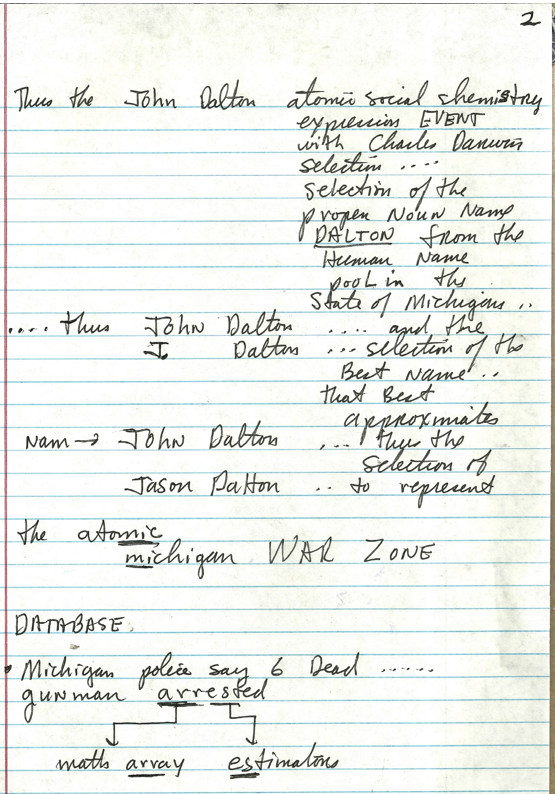 2
Thus the John Dalton atomic social chemistry
expression EVENT
with Charles Darwin
selection ....
selection of the
proper Noun Name
DALTON from the
Human Name
pool in the
State of Michigan ..
.... thus John Dalton .... and the
J Dalton ... selection of the
Best Name ..
that Best
approximates
Nam → John Dalton ... thus the
selection of
Jason Dalton .. to represent
the atomic
michigan WAR ZONE
DATABASE
• Michigan police say 6 Dead ......
gunman arrested
math array estimators